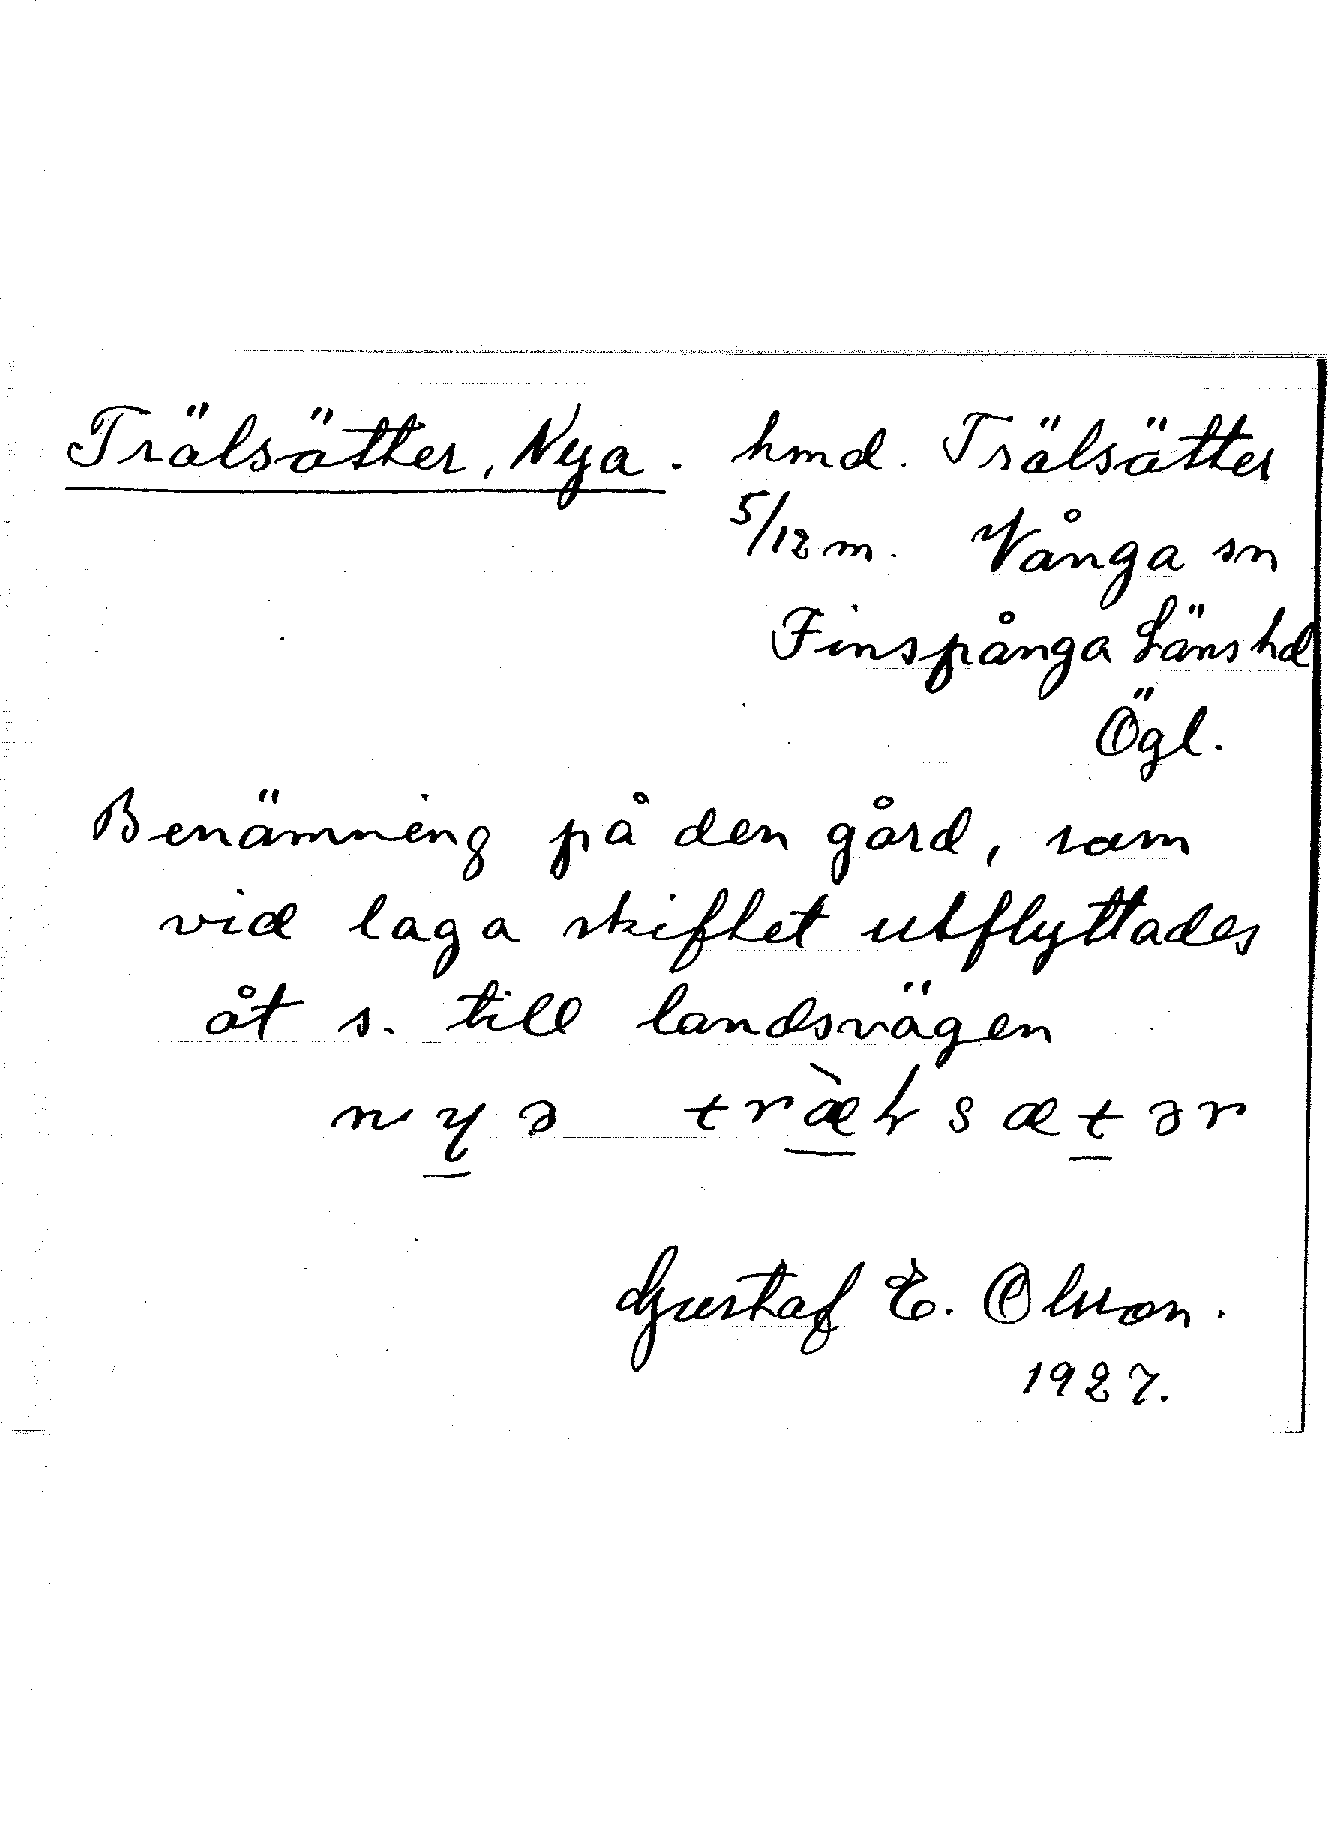 Trälsätter, Nya. hmd. Trälsätter
5/12 m. Vånga sn
Finspånga Länshd
Ögl.
Benämning på den gård, som
vid laga skiftet utflyttades
åt s. till landsvägen
nyə
Gustaf E. Olsson.
1927.